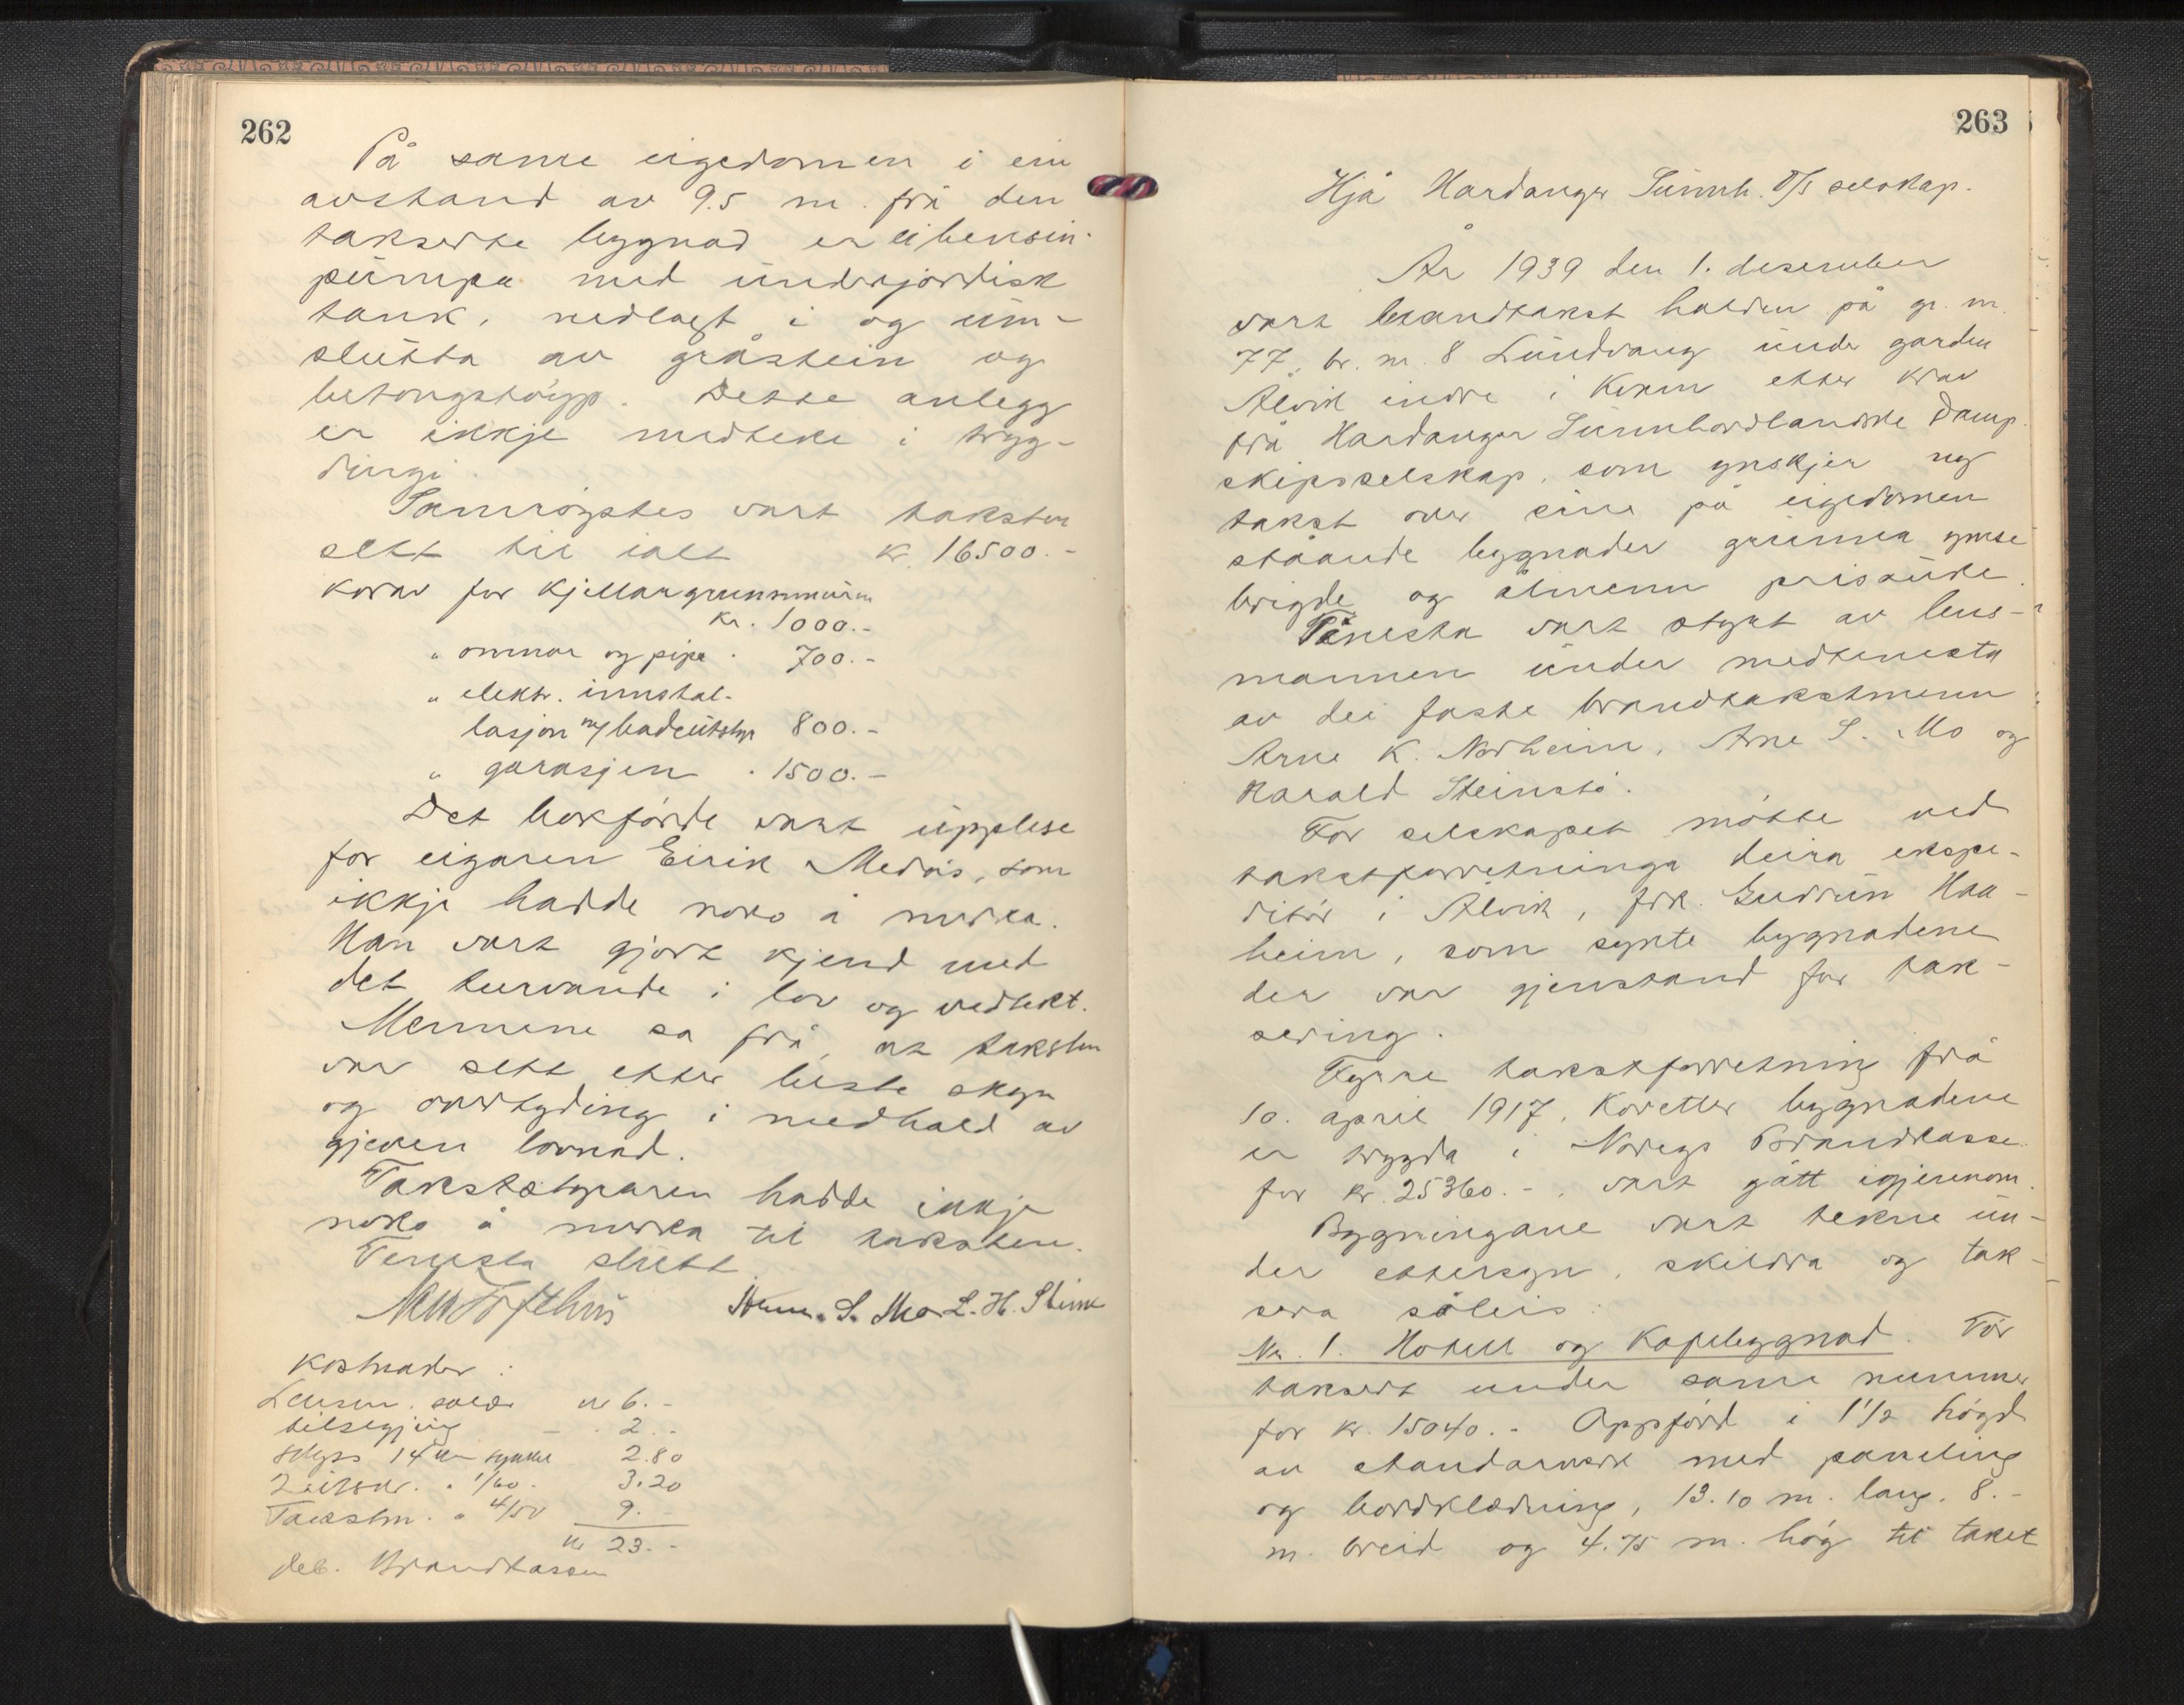 262
På same eigedomen i ein
avstand av 9.5 m. frå den
takserte bygnad er ei bensin-
pumpa med underjordisk
tank, nedlagt i og um-
slutta av gråstein og
betongstøyp. Dette anlegg
er ikkje medteke i tryg-
dingi.
Samrøystes vart taksten
sett til ialt kr. 16500.-
korav for kjellargrunnmuren
kr. 1000.-
" omnar og pipe . 700.-
" elektr. innstal-
lasjon m/ badeutstyr 800.-
" garasjen . 1500.-
Det bokførde vart upplese
for eigaren Eirik Medås, som
ikkje hadde noko å merka.
Han vart gjort kjend med
det turvande i lov og vedtekt.
Mennene sa frå, at taksten
var sett etter beste skyn
og overtyding i medhald av
gjeven lovnad.
Takststyraren hadde ikkje
noko å merka til taksten.
Tenesta slutt.
Arne S. Mo L. H. Steine
Kostnader :
Lensm. salær kr 6.-
tilsegjing - . 2.-
skyss 14 km 2.80
2 utskr. . 1/60 . 3.20
Takstm. . 4/50 9.-
kr 23.-
deb. Brandkassen
263
Hjå Hardanger Sunnh. D/S selskap.
År 1939 den 1. desember
vart brandtakst halden på gr. nr.
77, br. nr. 8 Lundvang under garden
Ålvik indre i Kvam etter krav
frå Hardanger Sunnhordlandske Damp-
skipsselskap, som ynskjer ny
takst over sine på eigedomen
ståande bygnader grunna ymse
brigde og ålmenn prisauke.
Tenesta vart styrt av lens-
mannen under medtenesta
av dei faste brandtakstmenn
Arne K. Norheim, Arne S. Mo og
Harald Steinstø.
For selskapet møtte ved
takstforretninga deira ekspe-
ditør i Ålvik, frk. Gudrun Haa-
heim, som synte bygnadene
der var gjenstand for tak-
sering.
Fyrre takstforretning frå
10. april 1917, koretter bygnadene
er trygda i Noregs Brandkasse
for kr. 25360.-, vart gått igjenom.
Bygningane vart tekne un-
der ettersyn, skildra og tak-
sera såleis:
Nr. 1. Hotell og Kafebygnad. Før
taksert under same nummer
for kr. 15040.- Oppførd i 1 1/2 høgd
av standarverk med paneling
og bordklædning, 13.10 m. lang, 8.-
m. breid og 4.75 m. høg til taket